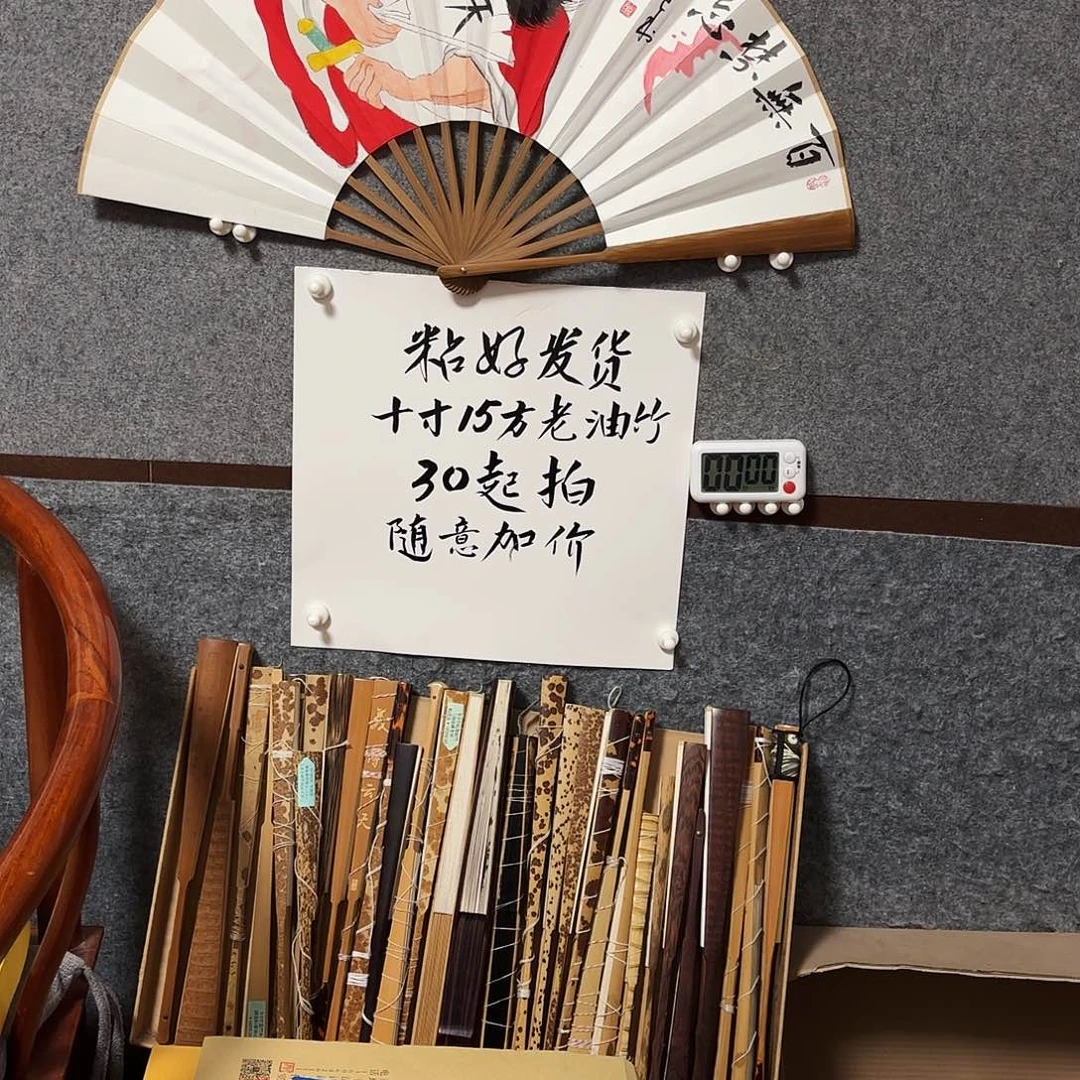 百無禁忌
粘好发货
十寸15方老油竹
30起拍
随意加价
00 00